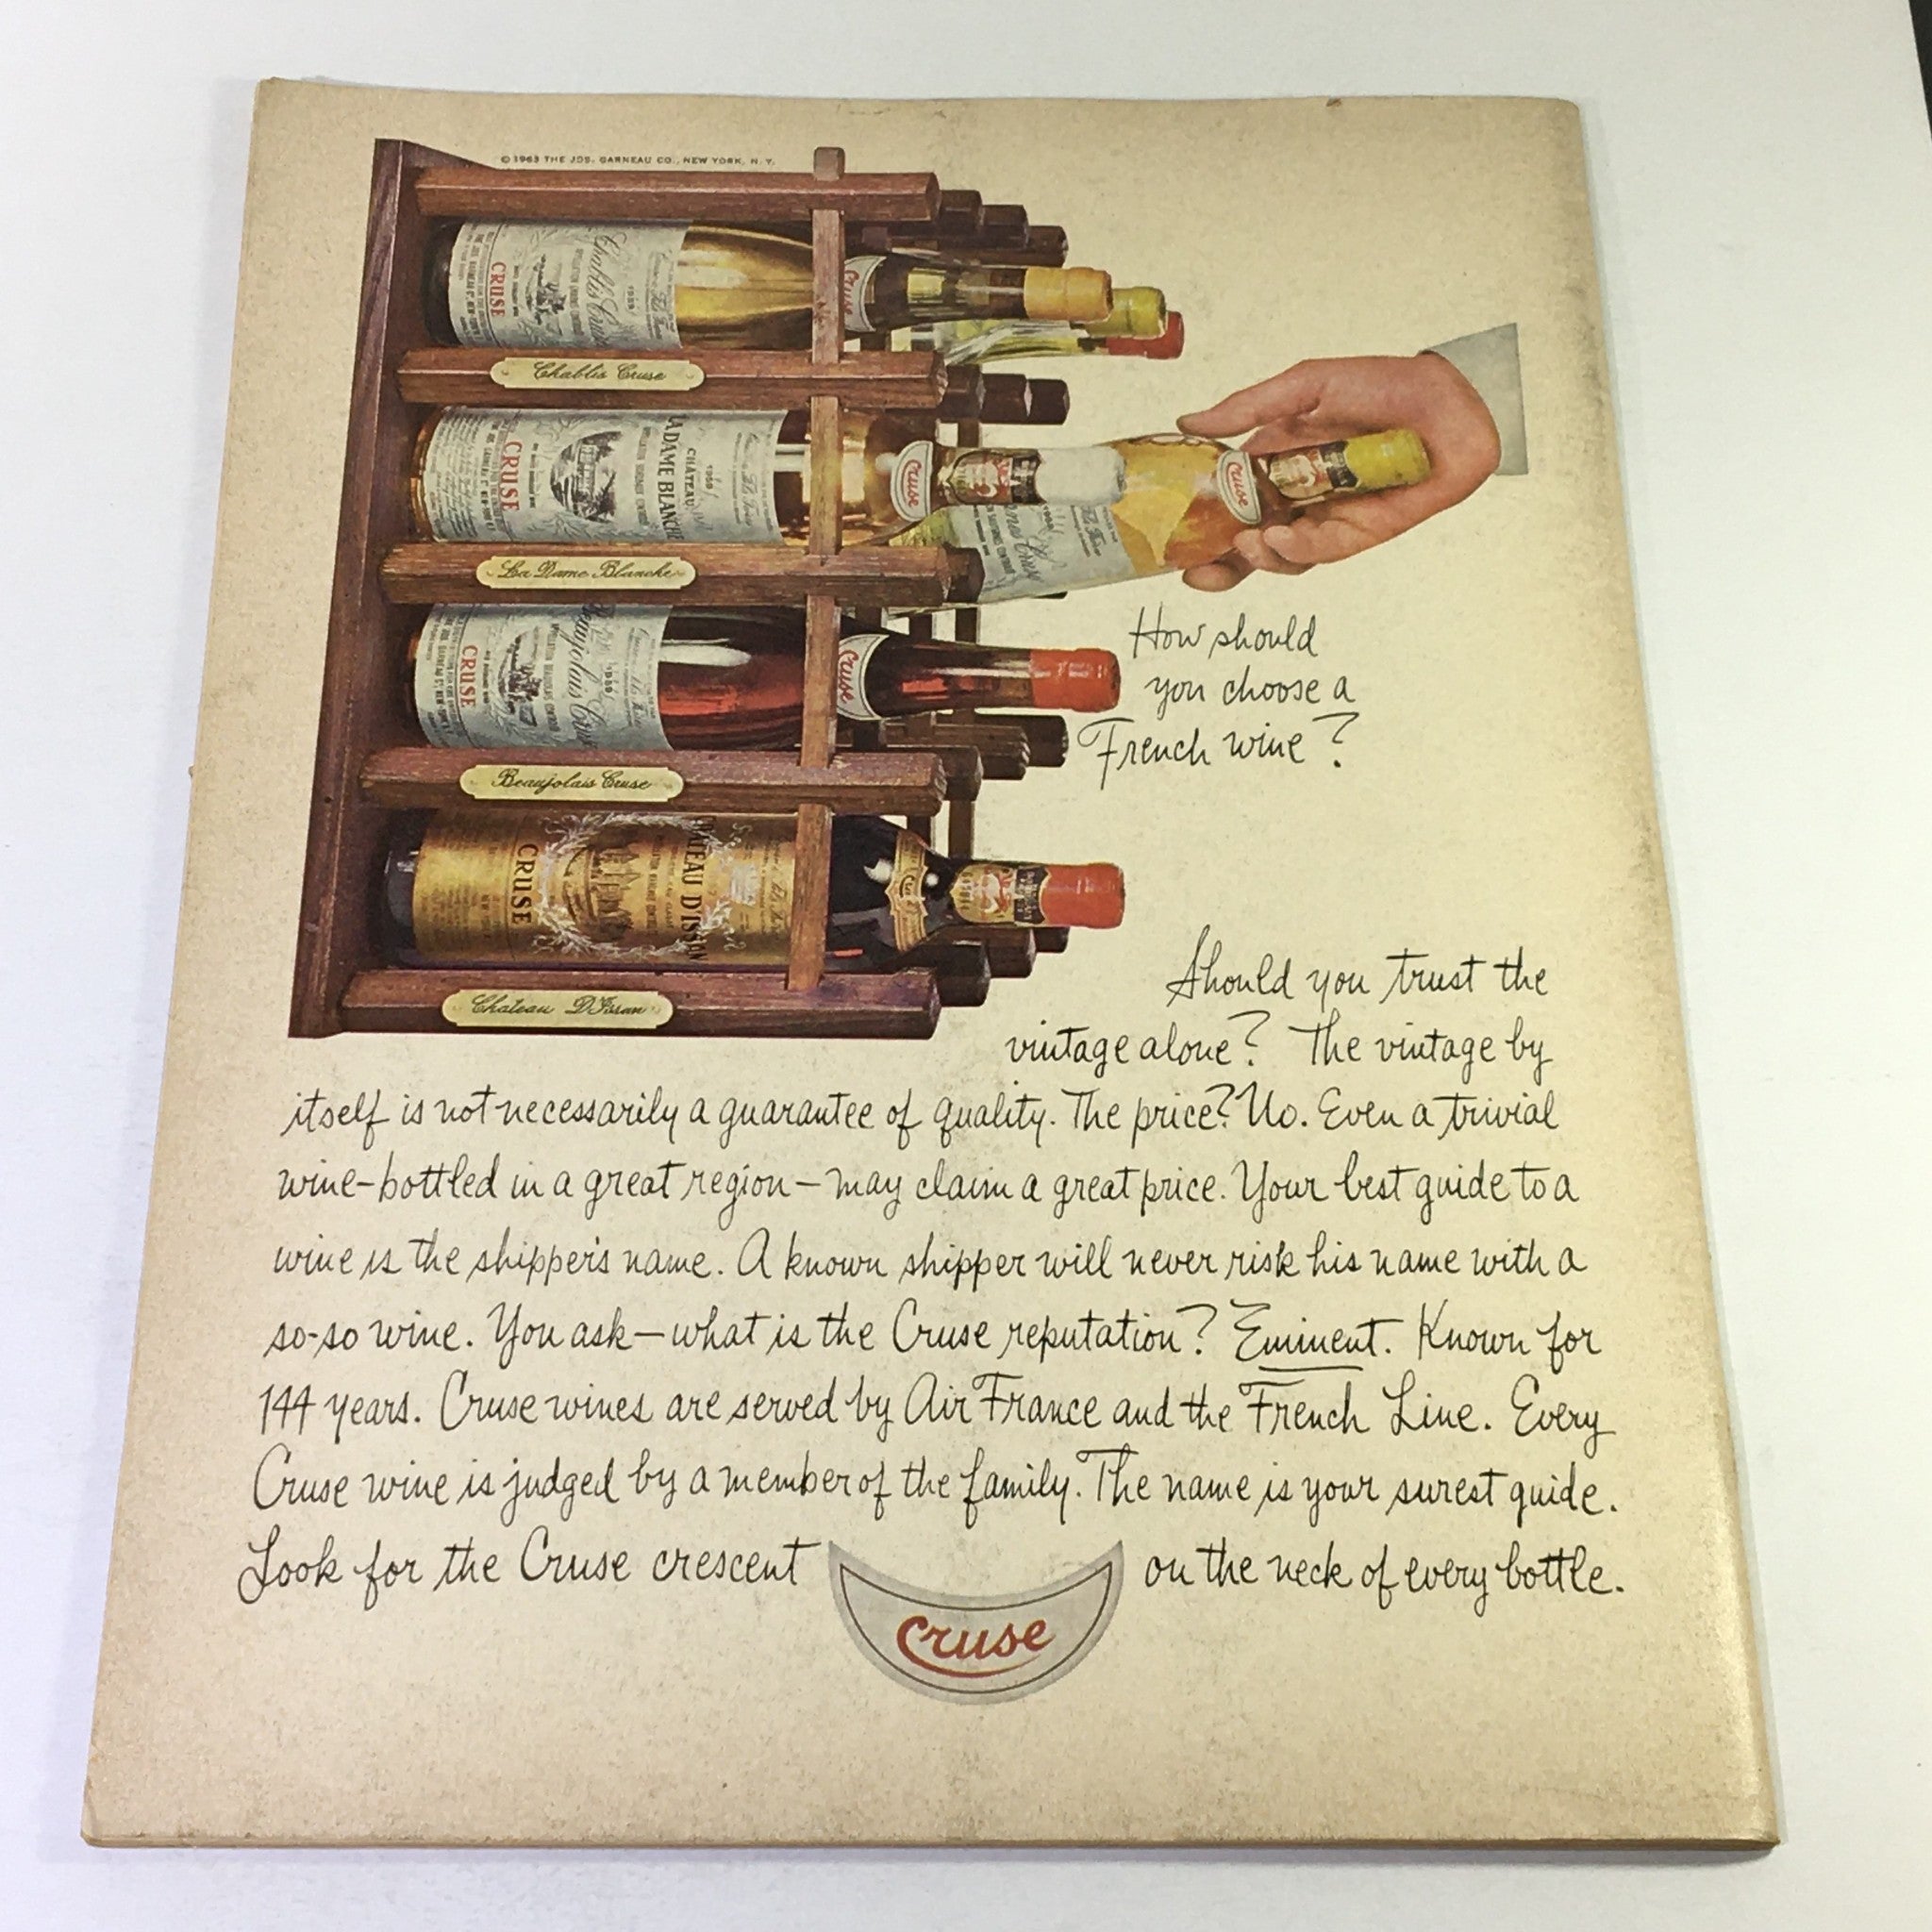 © 1963 THE JOS. GARNEAU CO., NEW YORK, N. Y.
Chablis Cruse
1959
CRUSE
Cruse
Chablis Cruse
1959
CHATEAU
LA DAME BLANCHE
CRUSE
Cruse
Cruse
La Dame Blanche
1959
Beaujolais Cruse
CRUSE
Cruse
Beaujolais Cruse
CHATEAU D'ISSAN
CRUSE
Chateau D'Issan
How should
you choose a
French wine?
Should you trust the
vintage alone? The vintage by
itself is not necessarily a guarantee of quality. The price? No. Even a trivial
wine-bottled in a great region — may claim a great price. Your best guide to a
wine is the shipper's name. A known shipper will never risk his name with a
so-so wine. You ask — what is the Cruse reputation? Eminent. Known for
144 years. Cruse wines are served by Air France and the French Line. Every
Cruse wine is judged by a member of the family. The name is your surest guide.
Look for the Cruse crescent on the neck of every bottle.
Cruse